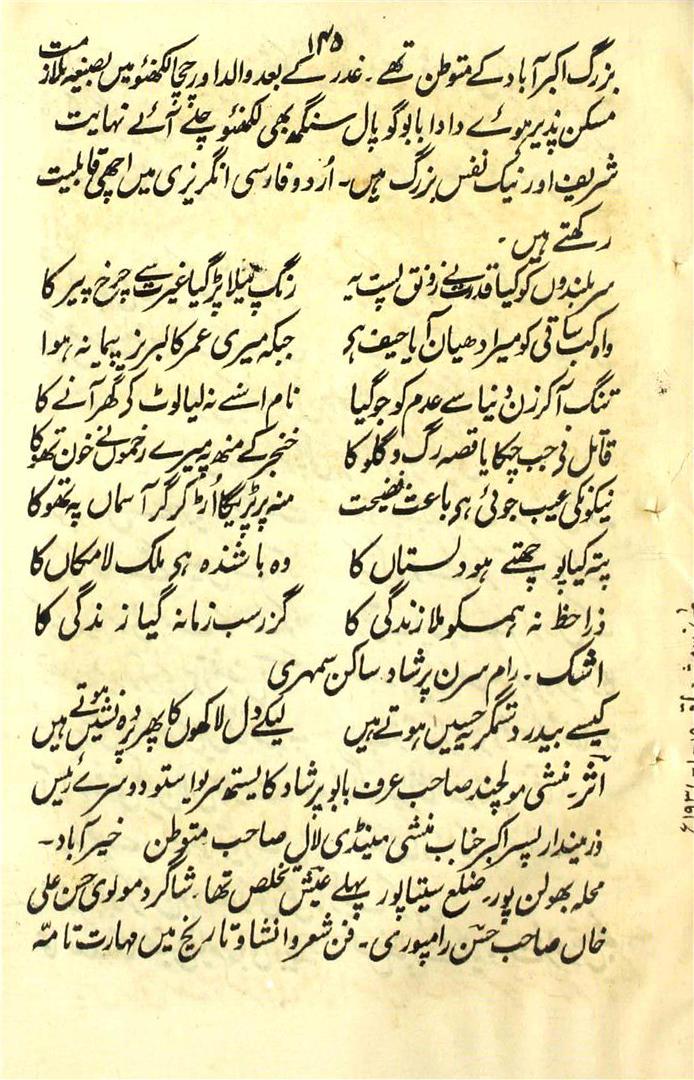 ۱۴۵
بزرگ اکبرآباد کے متوطن تھے ۔ غدر کے بعد والد اور چچا لکھنؤ میں بصیغہ ملازمت
مسکن پذیر ہوئے دادا بابو گوپال سنگھ بھی لکھنؤ چلے آئے نہایت
شریف اور نیک نفس بزرگ ہیں ۔ اُردو فارسی انگریزی میں اچھی قابلیت
رکھتے ہیں ۔
سر بلندوں کو کیا قدرت نے رونق پست یہ رنگ پیلا پڑ گیا غیرت سے چرخ پیر کا
واہ کب ساقی کو میرا دھیان آیا حیف ہی جبکہ میری عمر کا لبریز پیمانہ ہوا
تنگ آکر زن دنیا سے عدم کو جو گیا نام اسنے نہ لیا لوٹ کی گھر آنے کا
قاتل نی جب چکایا قصہ رگ و گلو کا خنجر کے منھ پہ میرے زخموں نے خون تھوکا
نیکونکی عیب جوئی ہی باعث فضیحت منہ پر پڑیگا اُڑ کر گر آسماں پہ تھوکا
پتہ کیا پوچھتے ہو دلستاں کا وہ باشندہ ہی ملک لامکاں کا
ذرا حظ نہ ہمسکو ملا زندگی کا گزر سب زمانہ گیا زندگی کا
اشک ۔ رام سرن پرشاد ساکن سمہری
کیسے بیدرد ستمگر یہ حسیں ہوتے ہیں لیکے دل لاکھوں کا پھر پردہ نشیں ہوتے ہیں
اثر ۔ منشی مولچند صاحب عرف بابو پرشاد کایستھ سریواستو دوسرے رئیس
زمیندار پسر اکبر جناب منشی مینڈی لال صاحب متوطن خیرآباد ۔
محلہ بھولن پور ۔ ضلع سیتاپور پہلے عیش تخلص تھا ۔ شاگرد مولوی حسن علی
خاں صاحب حسن رامپوری ۔ فن شعر و انشا و تاریخ میں مہارت تامہ